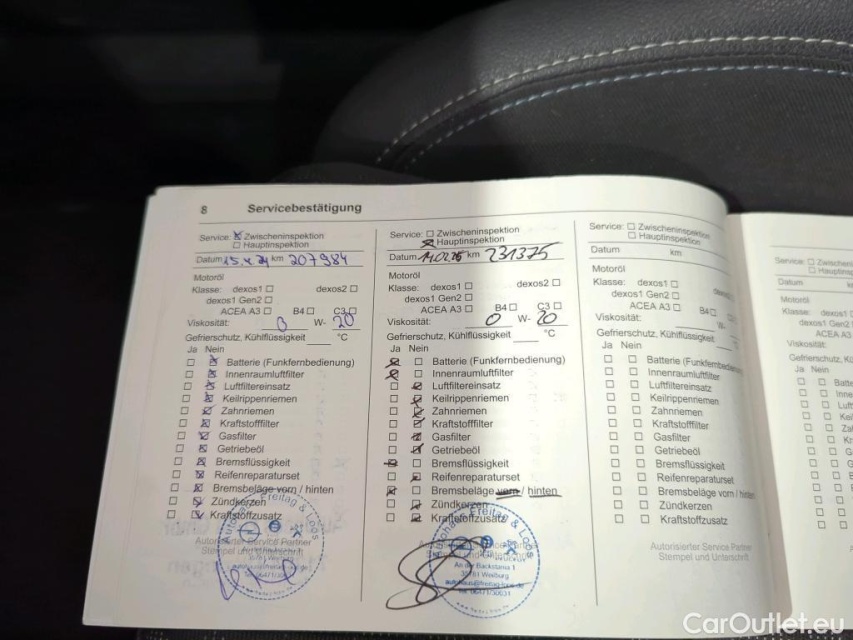 8 Servicebestätigung
Service: Zwischeninspektion
Hauptinspektion
Datum 15.4.24 km 207984
Motoröl
Klasse: dexos1 dexos2
dexos1 Gen2
ACEA A3 B4 C3
Viskosität: 0 W- 20
Gefrierschutz, Kühlflüssigkeit °C
Ja Nein
Batterie (Funkfernbedienung)
Innenraumluftfilter
Luftfiltereinsatz
Keilrippenriemen
Zahnriemen
Kraftstofffilter
Gasfilter
Getriebeöl
Bremsflüssigkeit
Reifenreparaturset
Bremsbeläge vorn / hinten
Zündkerzen
Kraftstoffzusatz
Autorisierter Service Partner
Stempel und Unterschrift
Autohaus Freitag & Loos
Service: Zwischeninspektion
Hauptinspektion
Datum km 231375
Motoröl
Klasse: dexos1 dexos2
dexos1 Gen2
ACEA A3 B4 C3
Viskosität: 0 W- 20
Gefrierschutz, Kühlflüssigkeit °C
Ja Nein
Batterie (Funkfernbedienung)
Innenraumluftfilter
Luftfiltereinsatz
Keilrippenriemen
Zahnriemen
Kraftstofffilter
Gasfilter
Getriebeöl
Bremsflüssigkeit
Reifenreparaturset
Bremsbeläge vorn / hinten
Zündkerzen
Kraftstoffzusatz
Autohaus Freitag & Loos
An der Backstania 1
35781 Weilburg
Service: Zwischeninspektion
Hauptinspektion
Datum km
Motoröl
Klasse: dexos1 dexos2
dexos1 Gen2
ACEA A3 B4
Viskosität: W-
Gefrierschutz, Kühlflüssigkeit
Ja Nein
Batterie (Funkfernbedienung
Innenraumluftfilter
Luftfiltereinsatz
Keilrippenriemen
Zahnriemen
Kraftstofffilter
Gasfilter
Getriebeöl
Bremsflüssigkeit
Reifenreparaturset
Bremsbeläge vorn / hinten
Zündkerzen
Kraftstoffzusatz
Autorisierter Service Partner
Stempel und Unterschrift
Service: Zwischeninsp
Hauptinspektion
Datum km
Motoröl
Klasse: dexos1
dexos1 Gen2
ACEA A3
Viskosität:
Gefrierschutz, Kü
Ja Nein
CarOutlet.eu